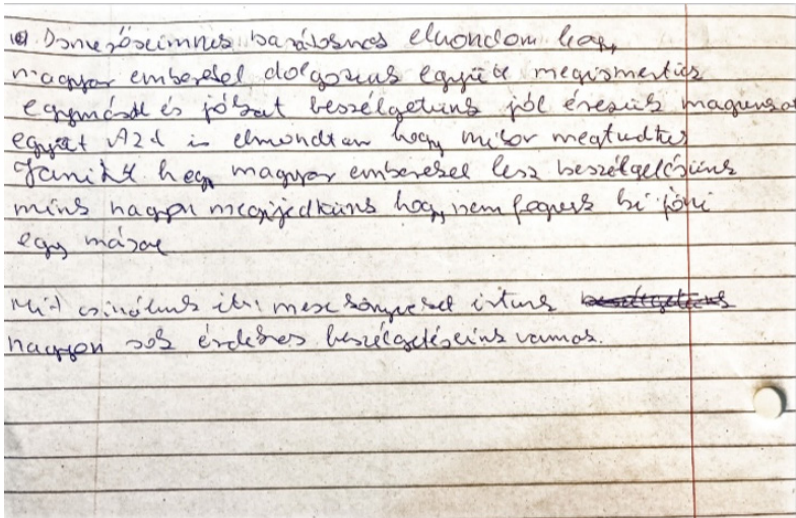 Ismerőseimnek barátoknak elmondom hogy
magyar emberekel dolgozunk együtt megismertük
egymást és jókat beszélgetünk jól érezük magunkat
együt Azt is elmondtam hogy mikor megtudtuk
hogy magyar emberekel lesz beszélgetésünk
mink nagyon megijedtünk hogy nem fogunk ki jöni
egy másal
Mit csinálunk itt mese könyveket irtunk
nagyon sok érdekes beszélgetéseink vannak.